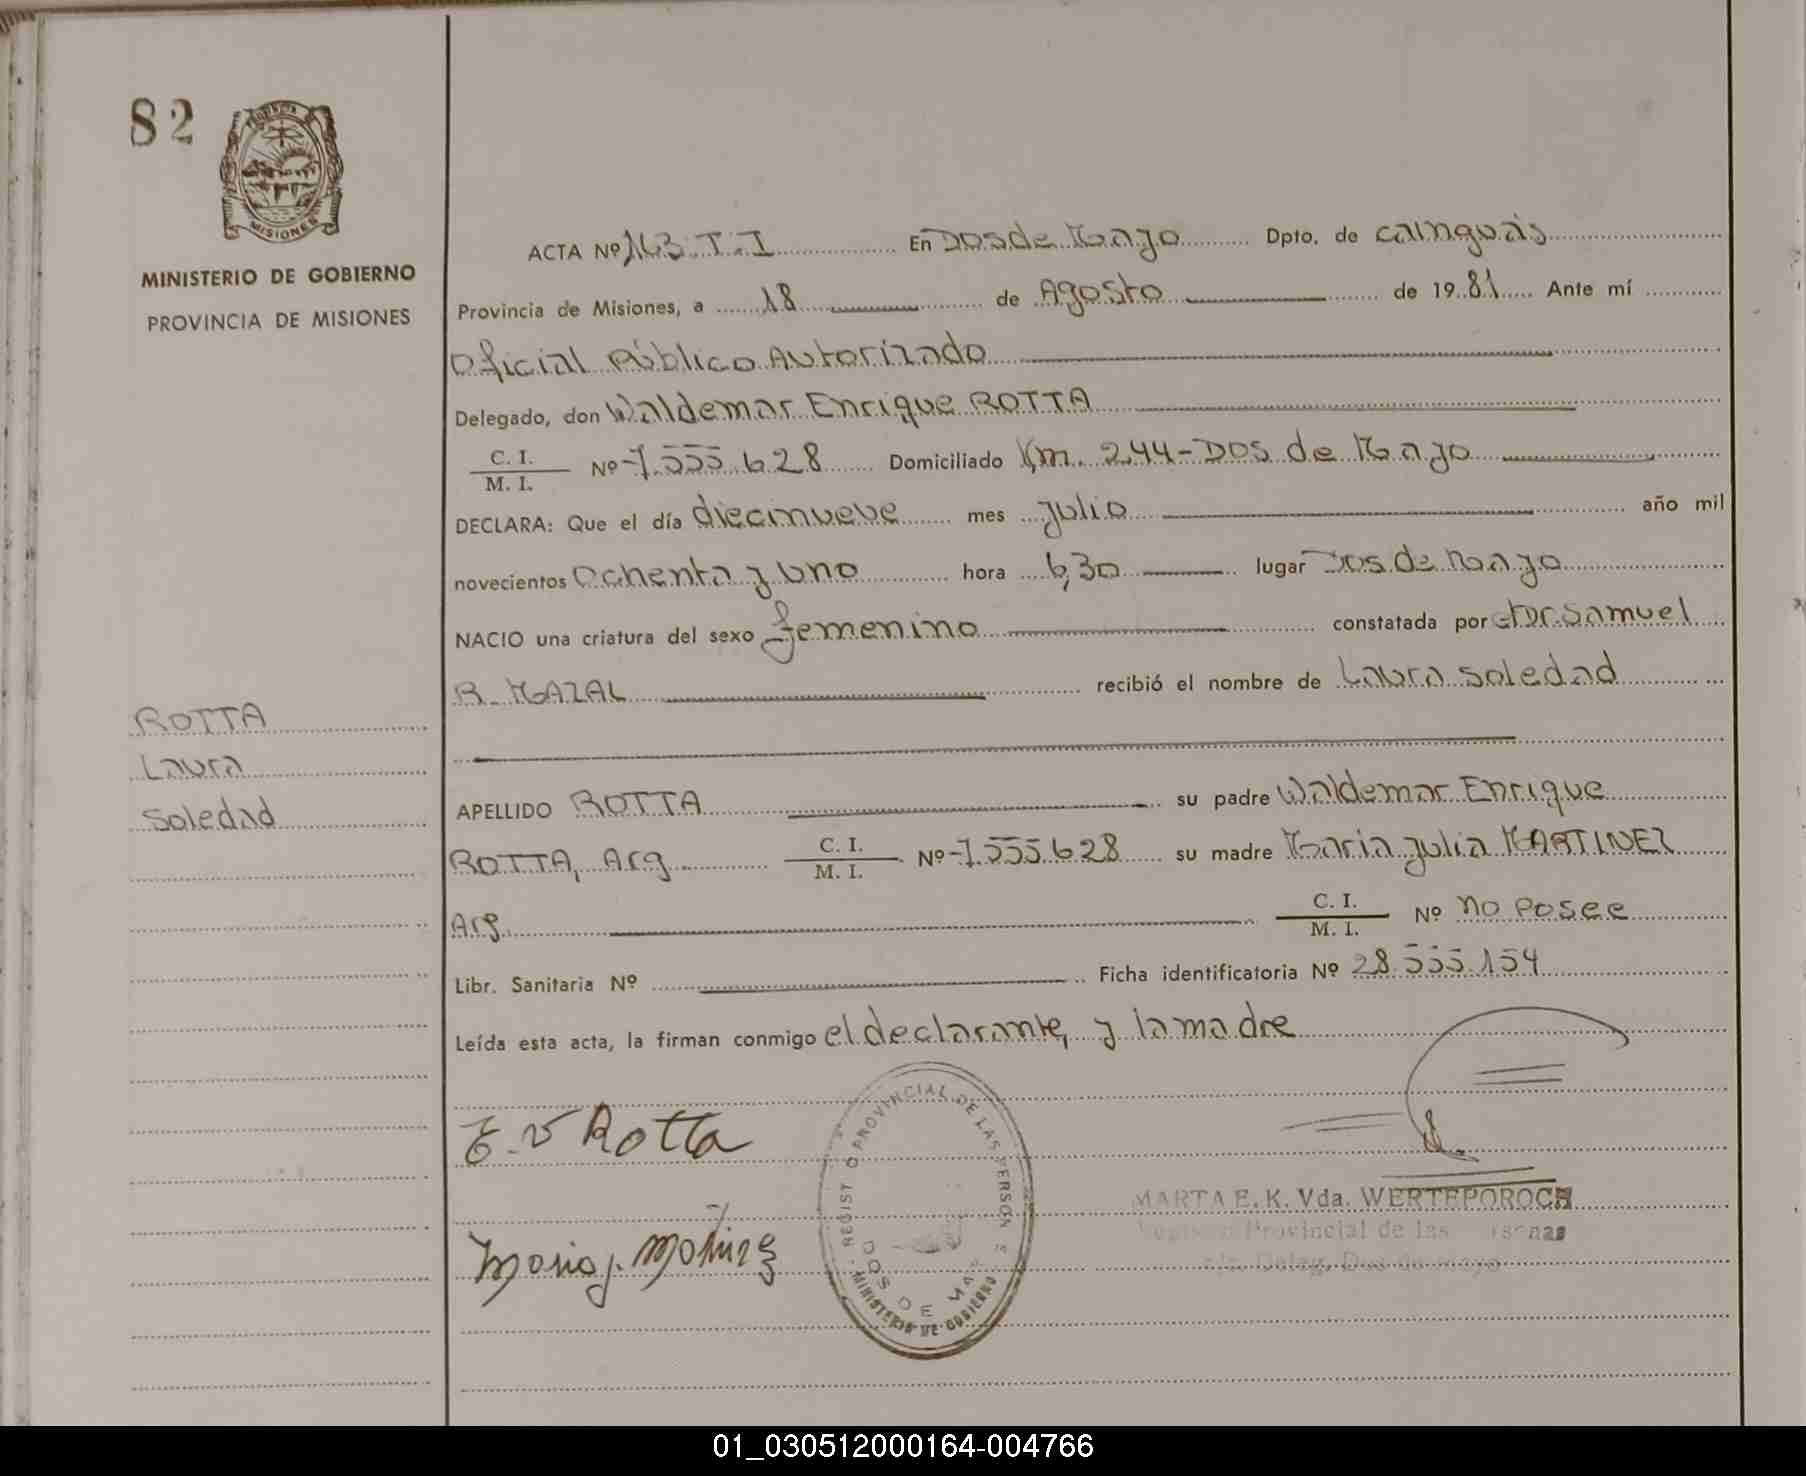 82
MISIONES
MINISTERIO DE GOBIERNO
PROVINCIA DE MISIONES
ROTTA
Laura
Soledad
ACTA Nº 163 T.I En Dos de Mayo Dpto. de cainguás
Provincia de Misiones, a 18 de Agosto de 1981 Ante mí
Oficial Público Autorizado
Delegado, don Waldemar Enrique ROTTA
C. I.
M. I. Nº 7.555.628 Domiciliado Km. 244-Dos de Mayo
DECLARA: Que el día diecinueve mes julio año mil
novecientos Ochenta y Uno hora 6,30 lugar Dos de Mayo
NACIO una criatura del sexo femenino constatada por el Dr. Samuel
R. MAZAL recibió el nombre de Laura Soledad
APELLIDO ROTTA su padre Waldemar Enrique
ROTTA, Arg C. I.
M. I. Nº 7.555.628 su madre Maria Julia MARTINEZ
Arg. C. I.
M. I. Nº no posee
Libr. Sanitaria Nº Ficha identificatoria Nº 28.555.154
Leída esta acta, la firman conmigo el declarante, y la madre
E. W Rotta
Maria J. Martinez
REGISTRO PROVINCIAL DE LAS PERSONAS
DOS DE MAYO
MINISTERIO DE GOBIERNO
MARTA E. K. Vda. WERTEPOROCH
Provincial de las
Deleg. Dos de mayo
01_030512000164-004766